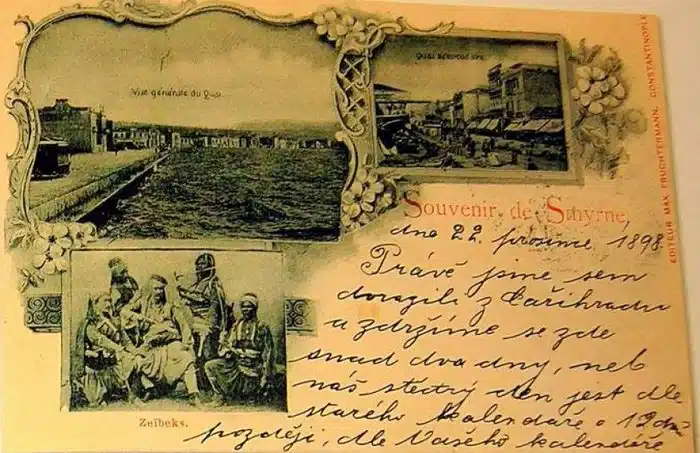 Vue générale du Quai
Quai
EDITEUR MAX FRUCHTERMANN, CONSTANTINOPLE
Souvenir de Smyrne,
dne 22. prosince 1898
Právě jsme sem
dorazili z Cařihradu
a zdržíme se zde
snad dva dny, neb
náš štědrý den jest dle
starého kalendáře o 12 dní
později, dle Vašeho kalendáře
Zeïbeks.